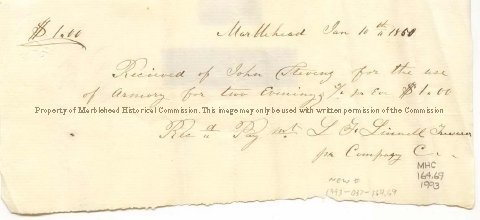 $1.00
Marblehead Jan 10th 1850
Received of John Stevens for the use
of Armory for two Evenings pr Ev $1.00
Property of Marblehead Historical Commission. This image may only be used with written permission of the Commission.
Recd Paymt L F Linnell
per Company C.
MHC
164.69
1993
NEW #
1993-037-164.69